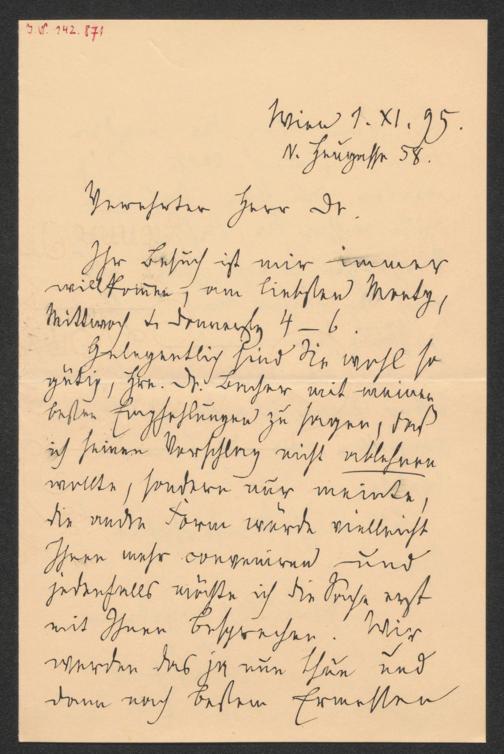 J. N. 142.871
Wien 1. XI. 95.
IV. Heugasse 58.
Verehrter Herr Dr.
Ihr Besuch ist mir immer
willkommen, am liebsten Montg,
Mittwoch & Donnerstg 4 – 6.
Gelegentlich sind Sie wohl so
gütig, Hrn. Dr. Bacher mit meinen
besten Empfehlungen zu sagen, daß
ich seinen Vorschlag nicht ablehnen
wollte, sondern nur meinte,
die andre Form würde vielleicht
Ihnen mehr conveniren und
jedenfalls möchte ich die Sache erst
mit Ihnen besprechen. Wir
werden das ja nun thun und
dann nach bestem Ermessen